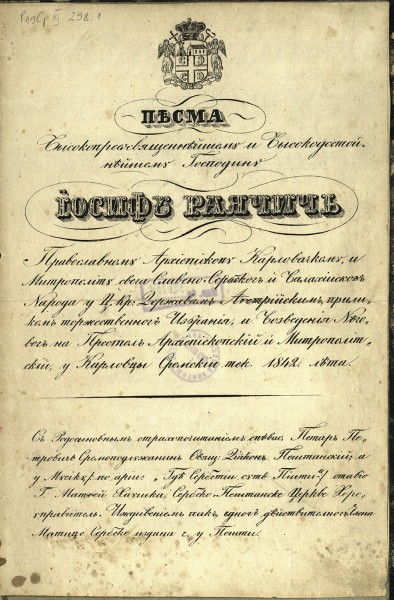 Гл Ср III 298.1
ПѢСМА
Высокопреосвященнѣйшемꙋ и Высокодостой-
нѣйшемꙋ Господинꙋ
ІОСИФꙊ РАЯЧИЧꙊ
Православномꙋ Архіепископꙋ Карловачкомꙋ, и
Митрополитꙋ свегъ Славено-Сербскогъ и Валахійскогъ
Народа у Ц. Кр. Державамъ Аvстрійскимъ, прили-
комъ торжественногъ Избранія, и Возведенія Нѣго-
вогъ на Престолъ Архіепископскій и Митрополит-
скій, у Карловцы Сремскій тек. 1842. лѣта.
Съ Родосыновнымъ страхопочитаніемъ спѣвао, Петаръ Пе-
тровичъ Сремоподлужанинъ Общ: Діяконъ Пештанскій, а
у Мꙋсикꙋ по аріи: Гдѣ Сербстіи сꙋть Пѣсти ставіо
Г. Матѳей Хахика, Сербско-Пештанске Церкве Хоро-
управитель. Иждивеніемъ пакъ єдногъ дѣйствителногъ Члена
Матице Сербске издана є, у Пешти.